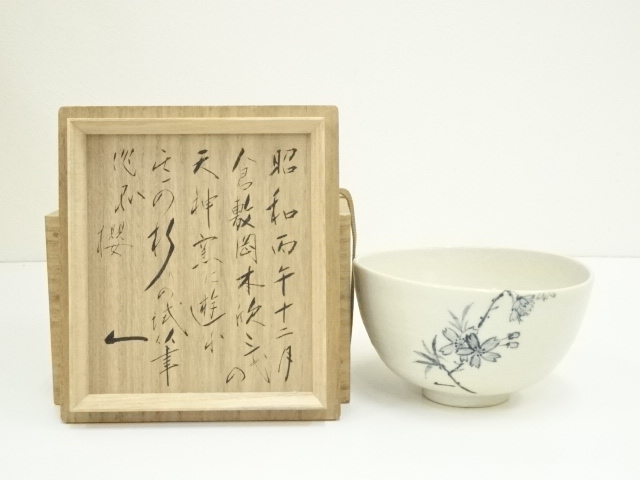 昭和丙午十二月
倉敷岡本欣三氏の
天神窯に遊び
その折りの試筆
桜